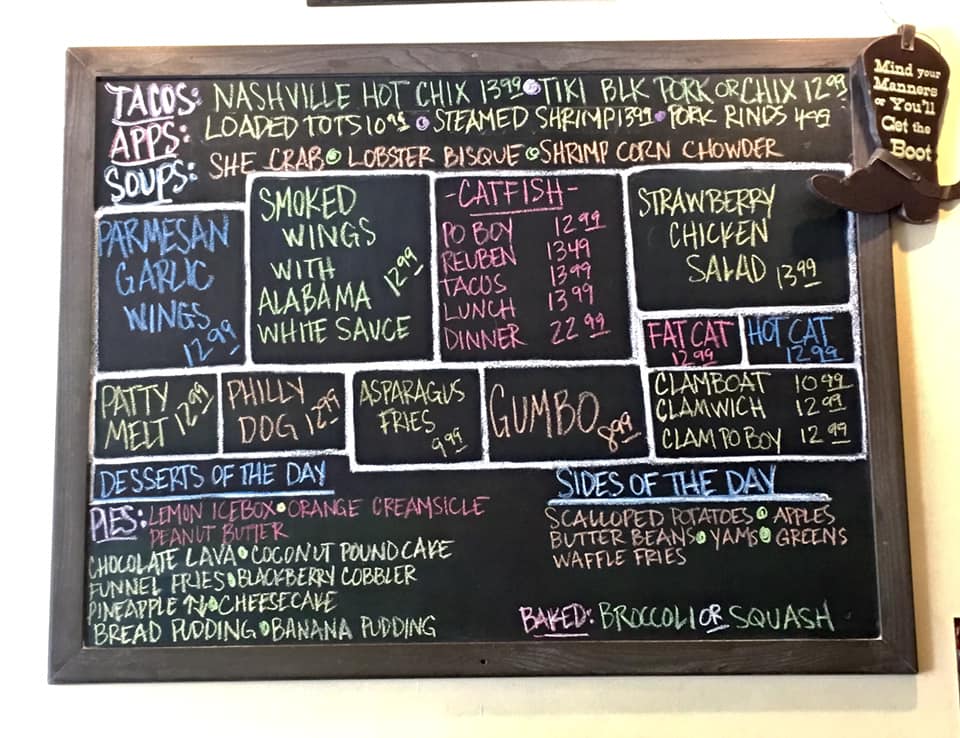 TACOS: NASHVILLE HOT CHIX 13.99 • TIKI BLK PORK OR CHIX 12.99
APPS: LOADED TOTS 10.99 • STEAMED SHRIMP 13.99 • PORK RINDS 4.99
SOUPS: SHE CRAB • LOBSTER BISQUE • SHRIMP CORN CHOWDER
PARMESAN
GARLIC
WINGS
12.99
SMOKED
WINGS
WITH
ALABAMA 12.99
WHITE SAUCE
-CATFISH-
PO BOY 12.99
REUBEN 13.49
TACOS 13.99
LUNCH 13.99
DINNER 22.99
STRAWBERRY
CHICKEN
SALAD 13.99
FAT CAT
12.99
HOT CAT
12.99
PATTY
MELT 12.99
PHILLY
DOG 12.99
ASPARAGUS
FRIES
9.99
GUMBO 8.99
CLAMBOAT 10.99
CLAMWICH 12.99
CLAM PO BOY 12.99
DESSERTS OF THE DAY
PIES: LEMON ICEBOX • ORANGE CREAMSICLE
PEANUT BUTTER
CHOCOLATE LAVA • COCONUT POUND CAKE
FUNNEL FRIES • BLACKBERRY COBBLER
PINEAPPLE • CHEESECAKE
BREAD PUDDING • BANANA PUDDING
SIDES OF THE DAY
SCALLOPED POTATOES • APPLES
BUTTER BEANS • YAMS • GREENS
WAFFLE FRIES
BAKED: BROCCOLI OR SQUASH
Mind your
Manners
or You'll
Get the
Boot